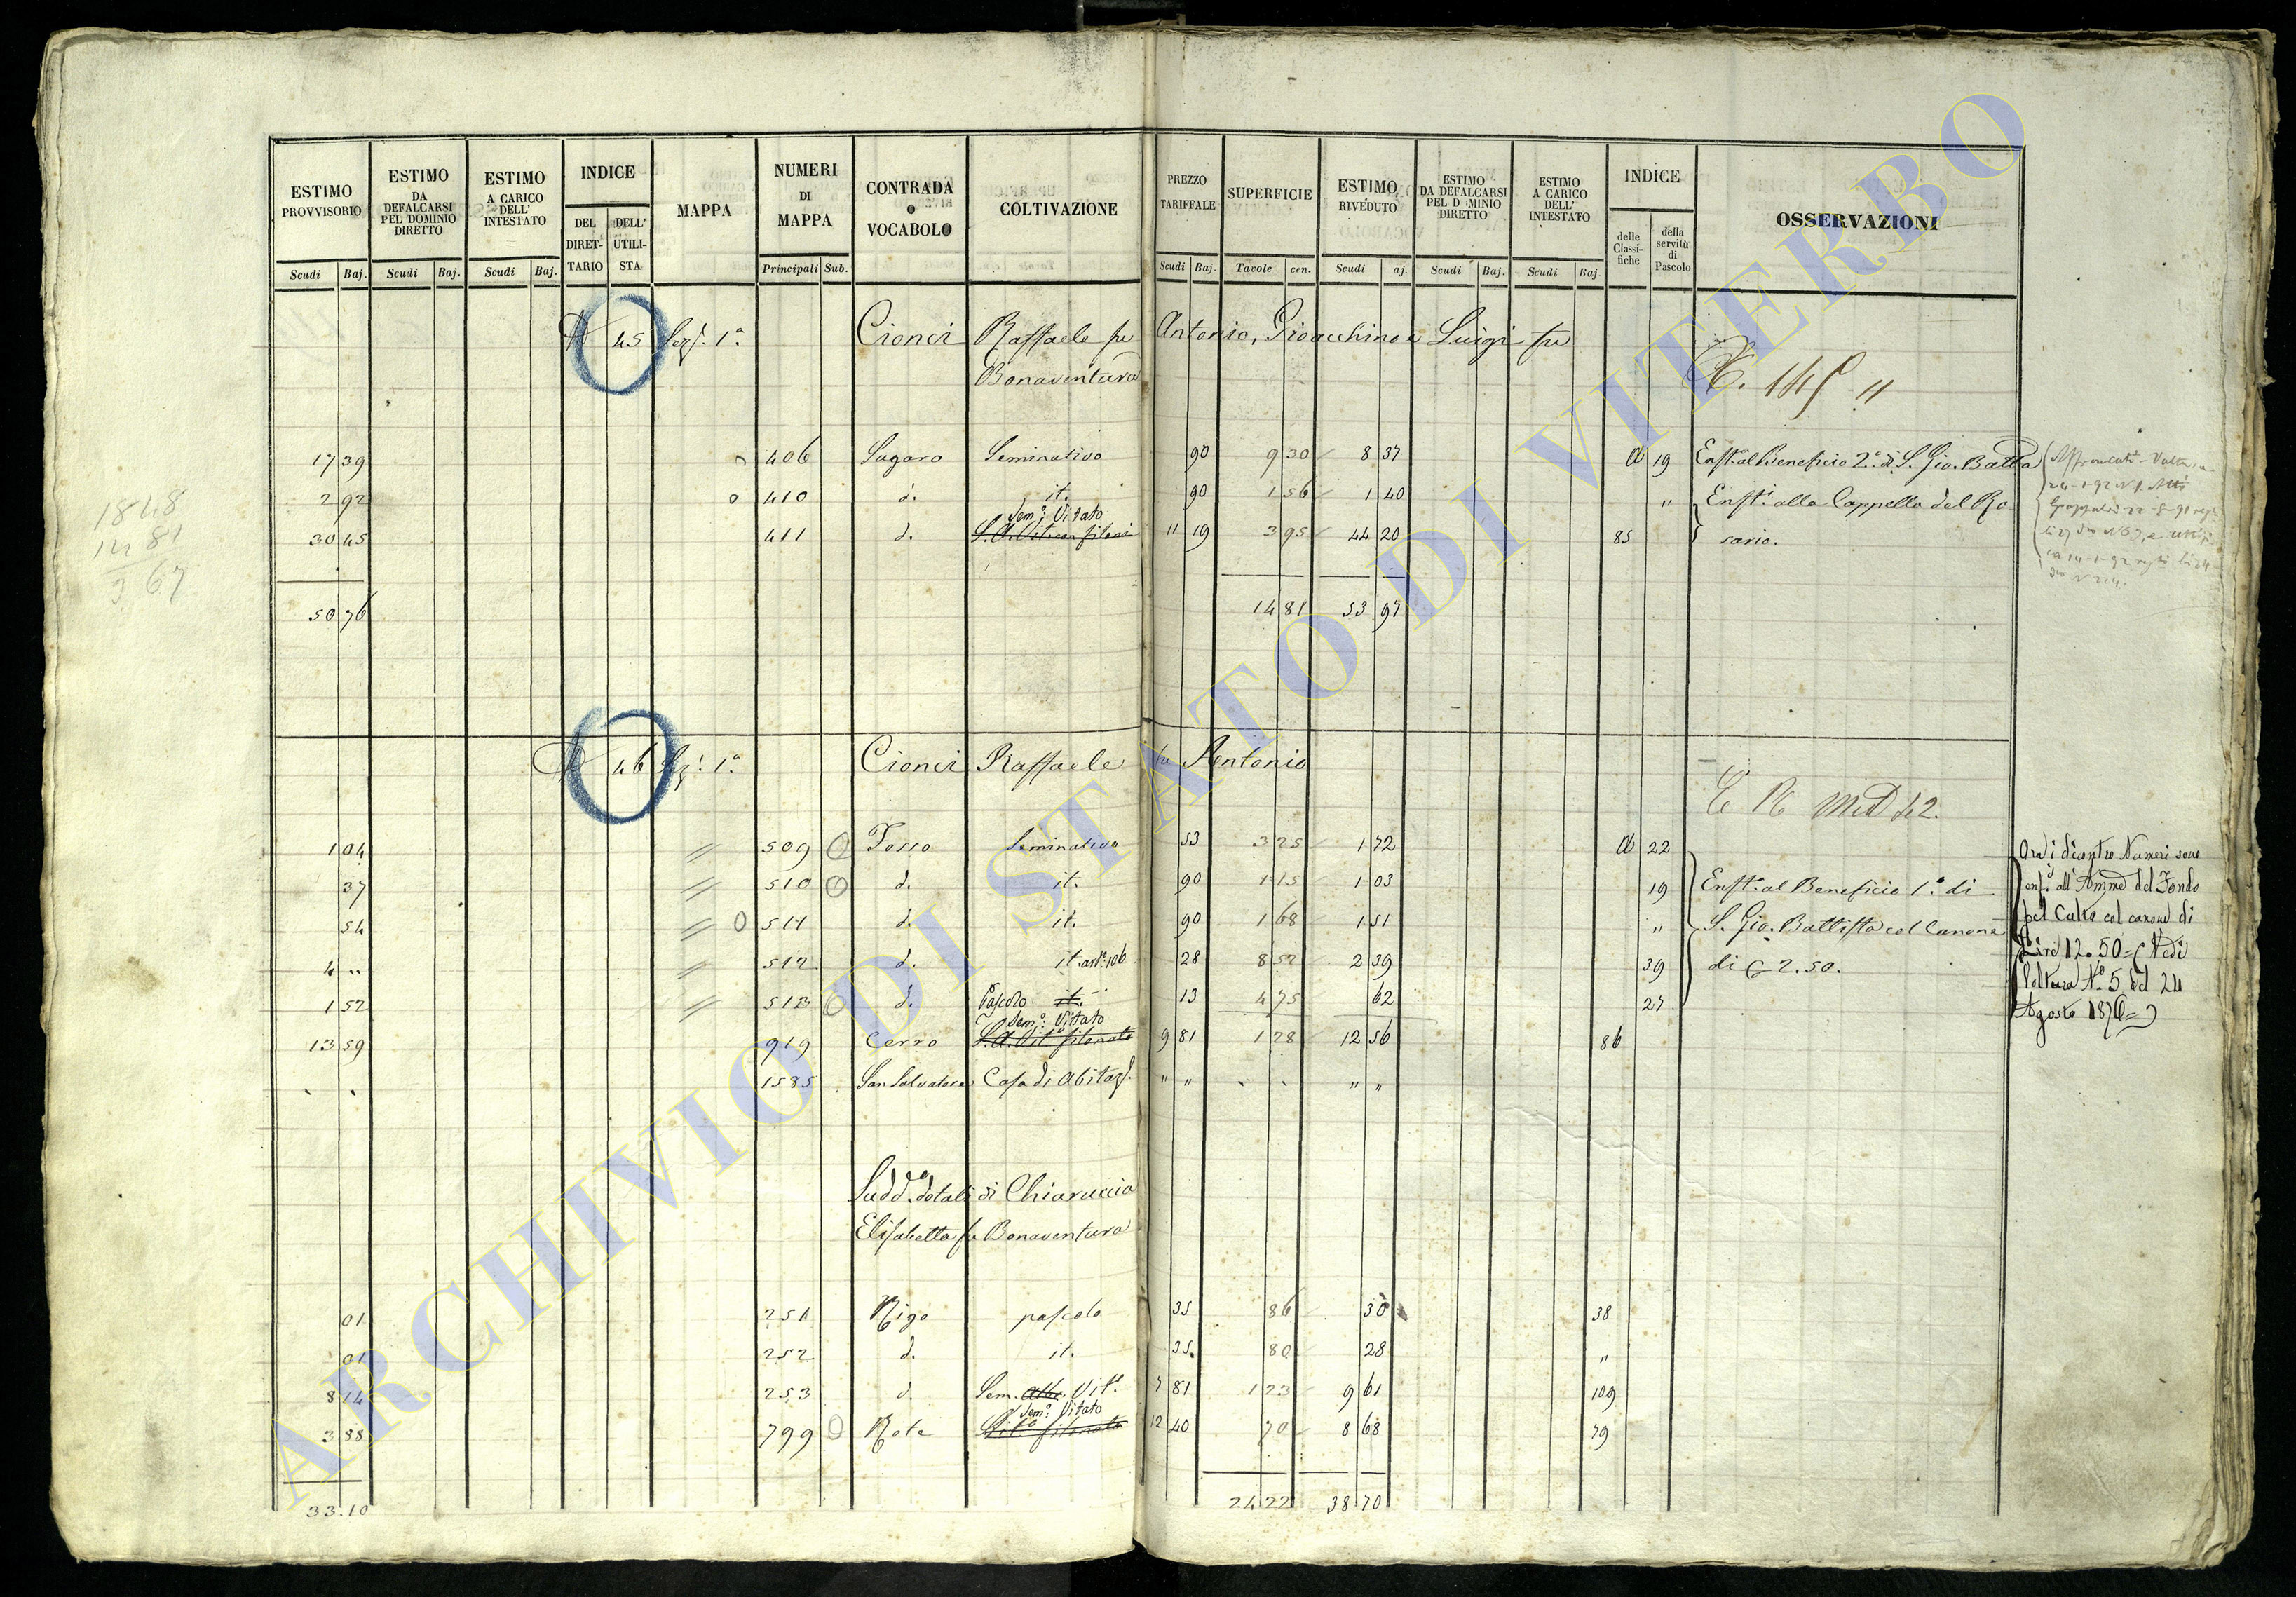 ESTIMO PROVVISORIO | ESTIMO DA DEFALCARSI PEL DOMINIO DIRETTO | ESTIMO A CARICO DELL' INTESTATO | INDICE | MAPPA | NUMERI DI MAPPA | CONTRADA O VOCABOLO | COLTIVAZIONE | PREZZO TARIFFALE | SUPERFICIE | ESTIMO RIVEDUTO | ESTIMO DA DEFALCARSI PEL D MINIO DIRETTO | ESTIMO A CARICO DELL' INTESTATO | INDICE | OSSERVAZIONI
DEL DIRET-TARIO | DELL' UTILI-STA | delle Classi-fiche | della servitù di Pascolo
Scudi | Baj. | Scudi | Baj. | Scudi | Baj. | Principali | Sub. | Scudi | Baj. | Tavole | cen. | Scudi | aj. | Scudi | Baj. | Scudi | Baj
45 Sez. 1ª Cionci Raffaele fu Antonio, Gioacchino e Luigi fu
Bonaventura
17 39 | 406 | Sugaro | Seminativo | 90 | 9 30 | 8 37 | 19 | Enft. al Beneficio 2º di S. Gio. Batta
2 92 | 410 | d. | it. | 90 | 1 56 | 1 40 | " | Enft. alla Cappella del Ro
Sem.º Vitato
30 45 | 411 | d. | 11 19 | 3 95 | 44 20 | 85 | sario.
50 76 | 14 81 | 53 97
1848
14 81
3 67
46 Sez. 1ª Cionci Raffaele fu Antonio
1 04 | 509 | Fosso | Seminativo | 53 | 3 25 | 1 72 | 22
37 | 510 | d. | it. | 90 | 1 15 | 1 03 | 19 | Enft. al Beneficio 1º di
54 | 511 | d. | it. | 90 | 1 68 | 1 51 | " | S. Gio. Battista col Canone
4 " | 512 | d. | it. | 28 | 8 52 | 2 39 | 39 | di 2.50.
1 52 | 513 | d. | Pascolo it. | 13 | 4 75 | 62 | 27
Sem.º Vitato
13 59 | 919 | Cerro | 9 81 | 1 28 | 12 56 | 86
1585 | San Salvatore | Casa di Abitaz. | " " | " "
Ora i dicontro Numeri sono
enf. all' Ammne del Fondo
pel Culto col canone di
Lire 12.50 = (Vedi
Voltura Nº 5 del 24
Agosto 1876 =)
Sudd. dotali di Chiaruccia
Elisabetta fu Bonaventura
01 | 251 | Rigo | pascolo | 35 | 86 | 30 | 38
01 | 252 | d. | it. | 35 | 80 | 28 | "
8 14 | 253 | d. | Sem. Vit. | 7 81 | 1 23 | 9 61 | 109
Sem.º Vitato
3 88 | 799 | Rote | 12 40 | 70 | 8 68 | 79
33.10 | 24 22 | 38 70
ARCHIVIO DI STATO DI VITERBO